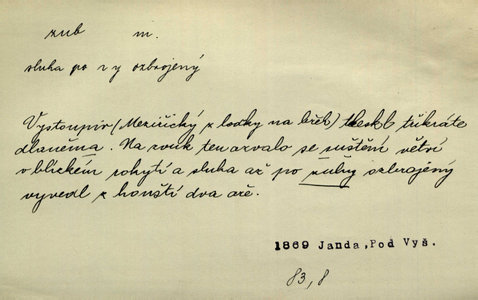 zub m.
sluha po z y ozbrojený
Vystoupiv (Meziřický z lodky na břeh) tleskl třikráte
dlaněma. Na zvuk ten ozvalo se suštění větví
v blízkém rokytí a sluha až po zuby ozbrojený
vyvedl z houští dva oře.
1869 Janda, Pod Vyš.
83, 8